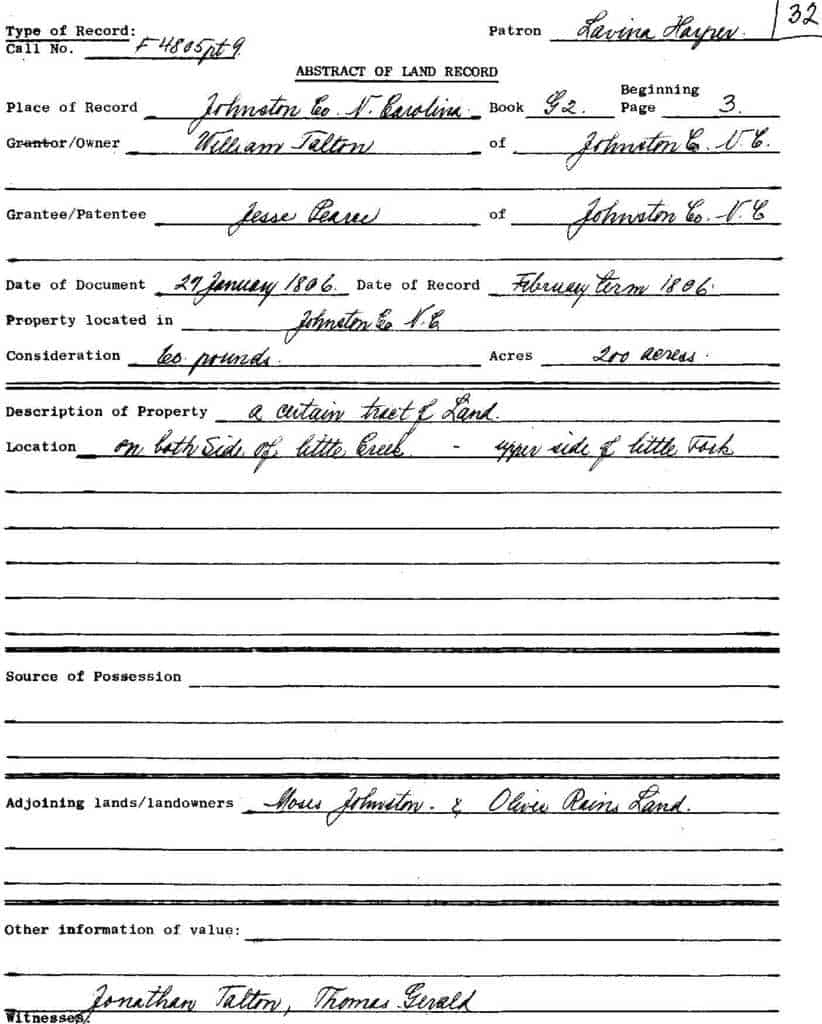 32
Type of Record: Patron Lavina Harper.
Call No. F 4805 pt 9
ABSTRACT OF LAND RECORD
Place of Record Johnston Co. N. Carolina. Book G2. Beginning Page 3.
Grantor/Owner William Talton of Johnston C. N. C.
Grantee/Patentee Jesse Pearce of Johnston Co. N. C
Date of Document 27 January 1806. Date of Record February term 1806.
Property located in Johnston Co N. C
Consideration 60 pounds. Acres 200 acreas.
Description of Property a certain tract of Land.
Location on both Side of little Creek - upper side of little Fork
Source of Possession
Adjoining lands/landowners Moses Johnston. & Oliver Rains Land.
Other information of value:
Jonathan Talton, Thomas Gerald
Witnesses/